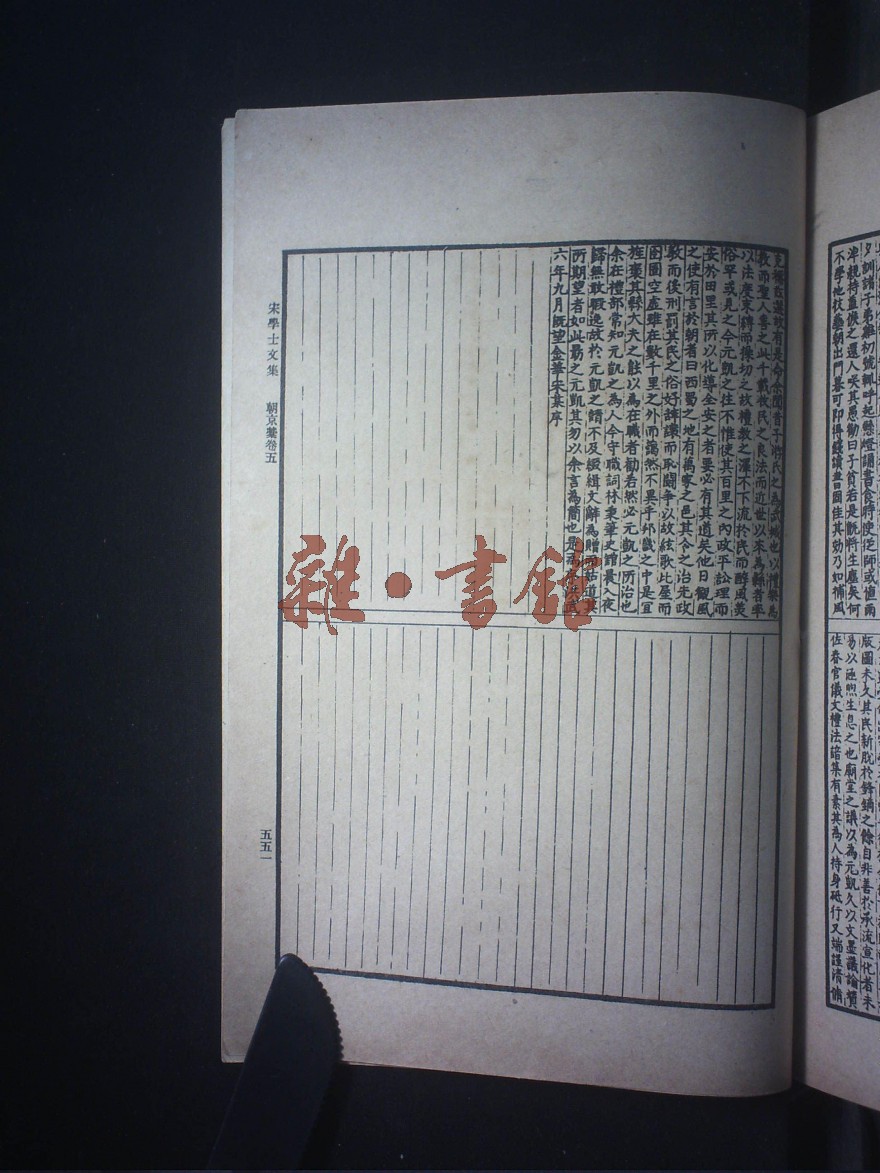 夕訓諸子弟雞初號輒呼起懸燈誦書食時使從師或值雨
潦親持蓋俟之還人矣其愚勸曰子貧若是甑將生塵矣何
不學他技藝朝出門暮可即得錢讀書固佳其効乃如捕風
版圖未久其民新脫於鋒鏑之餘自非善於承流宣化者未
易以涵煦生息之也廟堂之議以為元凱久以文墨議論贊
佐春官儀文禮法諳集有素其為人持身砥行又端謹清慎
克稱茲選故有是命余聞昔子游氏之為武城也以禮樂為
教而聖人善之此千載牧民之良法而近世以來為縣者率
以法度束縛而操切之故禮教之澤不下流於民而醇風美
俗罕或見之今元凱之往不惟使其百里之內政平訟理而
安於田里其所以化導全安之者要必有其道矣他日觀風
之使有言於朝者曰西蜀之地有萬家之邑其令之治先政
教而後刑罰其民之俗好辭讓而恥鬪爭以故絃歌比屋而
囹圄空虛雖在數千里之外而藹然不異乎邦畿之中是宜
旌褒其縣大夫之能以為在職者勸若然必元凱之所治也
余在禮部常知元凱之為人今守職詞林秉筆之諳晨入夜
歸無敢暇逸故於元凱之諳不及緻緝文辭為贈
所期望者如此勗之元凱其勿以余言為簡也是
六年九月既望金華宋某序
宋學士文集 朝京藁卷五
五五一
雜·書館